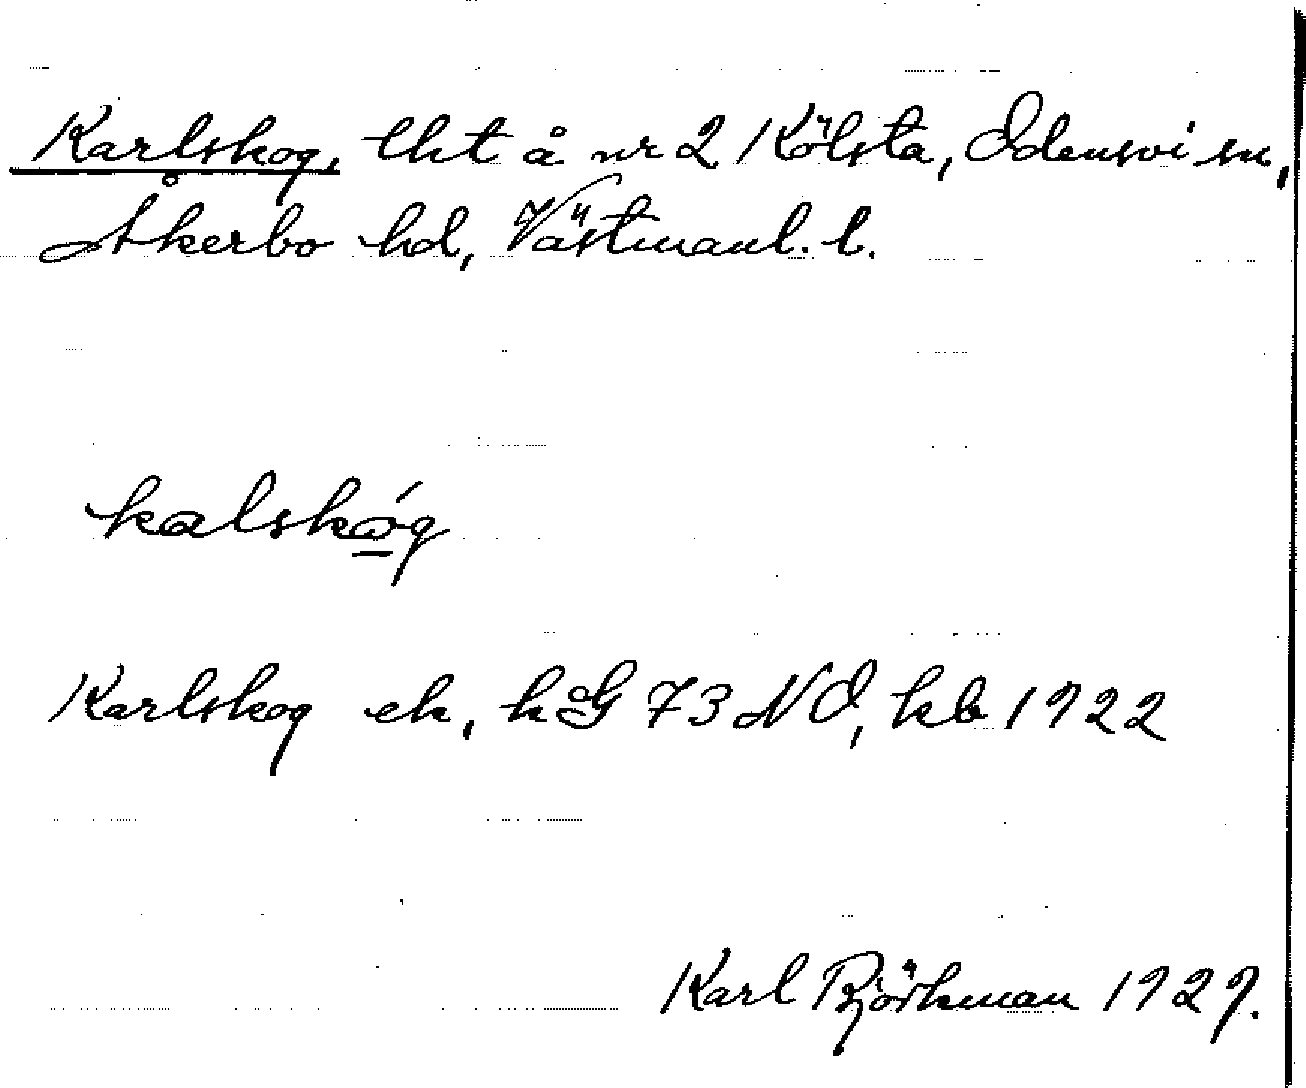 Karlskog, lht å nr 2 Kölsta, Odensvi sn,
Åkerbo hd, Västmanl. l.
kalskóg
Karlskog ek, håG 73 NO, hb 1922
Karl Björkman 1929.